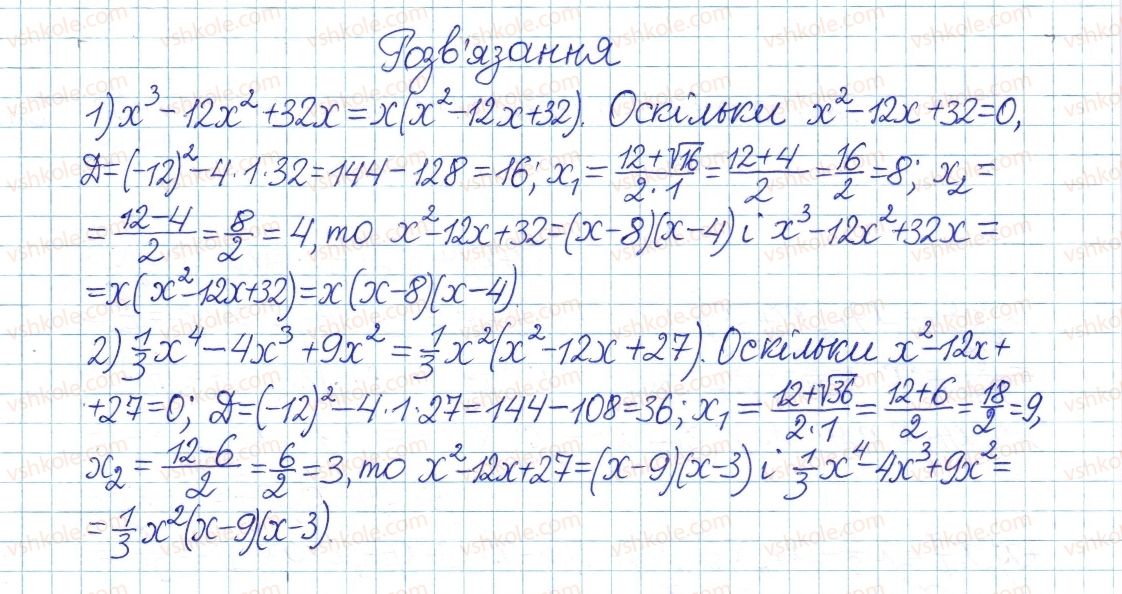 Розв'язання
1) x³ - 12x² + 32x = x(x² - 12x + 32). Оскільки x² - 12x + 32 = 0,
Д = (-12)² - 4·1·32 = 144 - 128 = 16; x₁ = (12+√16)/(2·1) = (12+4)/2 = 16/2 = 8; x₂ =
= (12-4)/2 = 8/2 = 4, то x² - 12x + 32 = (x-8)(x-4) і x³ - 12x² + 32x =
= x(x² - 12x + 32) = x(x-8)(x-4).
2) 1/3 x⁴ - 4x³ + 9x² = 1/3 x²(x² - 12x + 27). Оскільки x² - 12x +
+ 27 = 0; Д = (-12)² - 4·1·27 = 144 - 108 = 36; x₁ = (12+√36)/(2·1) = (12+6)/2 = 18/2 = 9,
x₂ = (12-6)/2 = 6/2 = 3, то x² - 12x + 27 = (x-9)(x-3) і 1/3 x⁴ - 4x³ + 9x² =
= 1/3 x²(x-9)(x-3).
vshkole.com